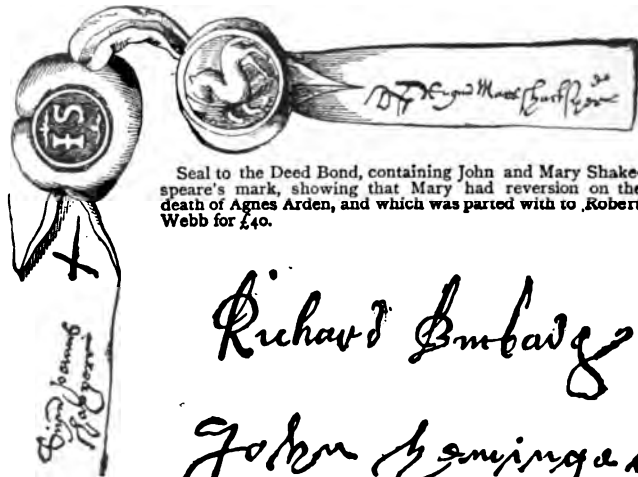 Seal to the Deed Bond, containing John and Mary Shake-
speare's mark, showing that Mary had reversion on the
death of Agnes Arden, and which was parted with to Robert
Webb for £40.
Richard Burbadg
John heminge